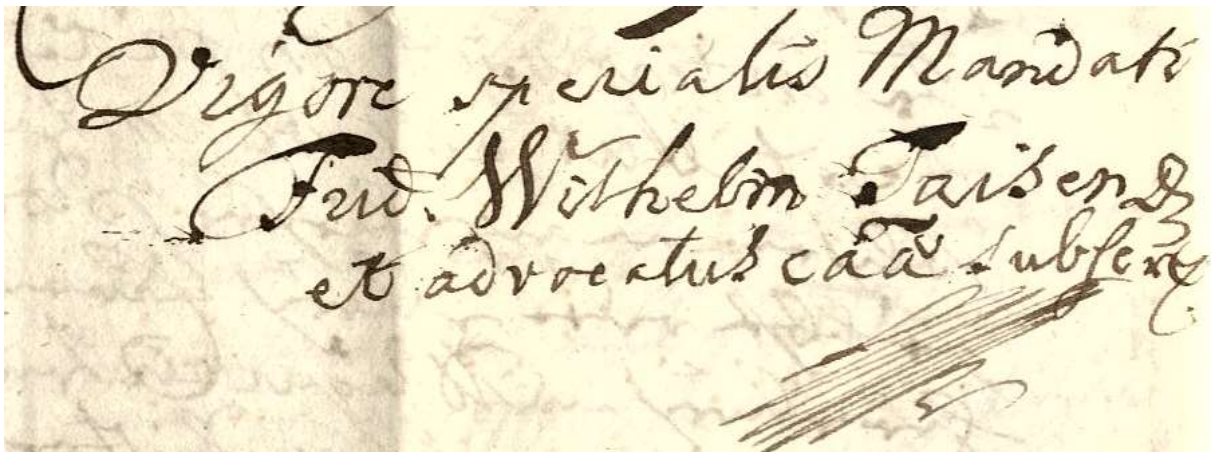 Vigore specialis Mandati
Frid. Wilhelm Taisen
et advocatus caã subscr